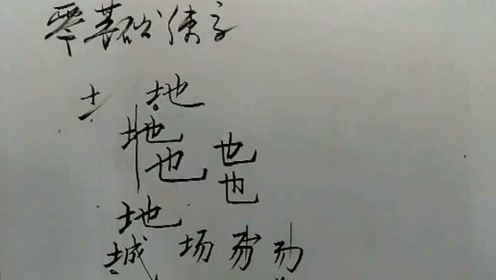 零基础练字
土 地
地
也 也
也
地
城 场